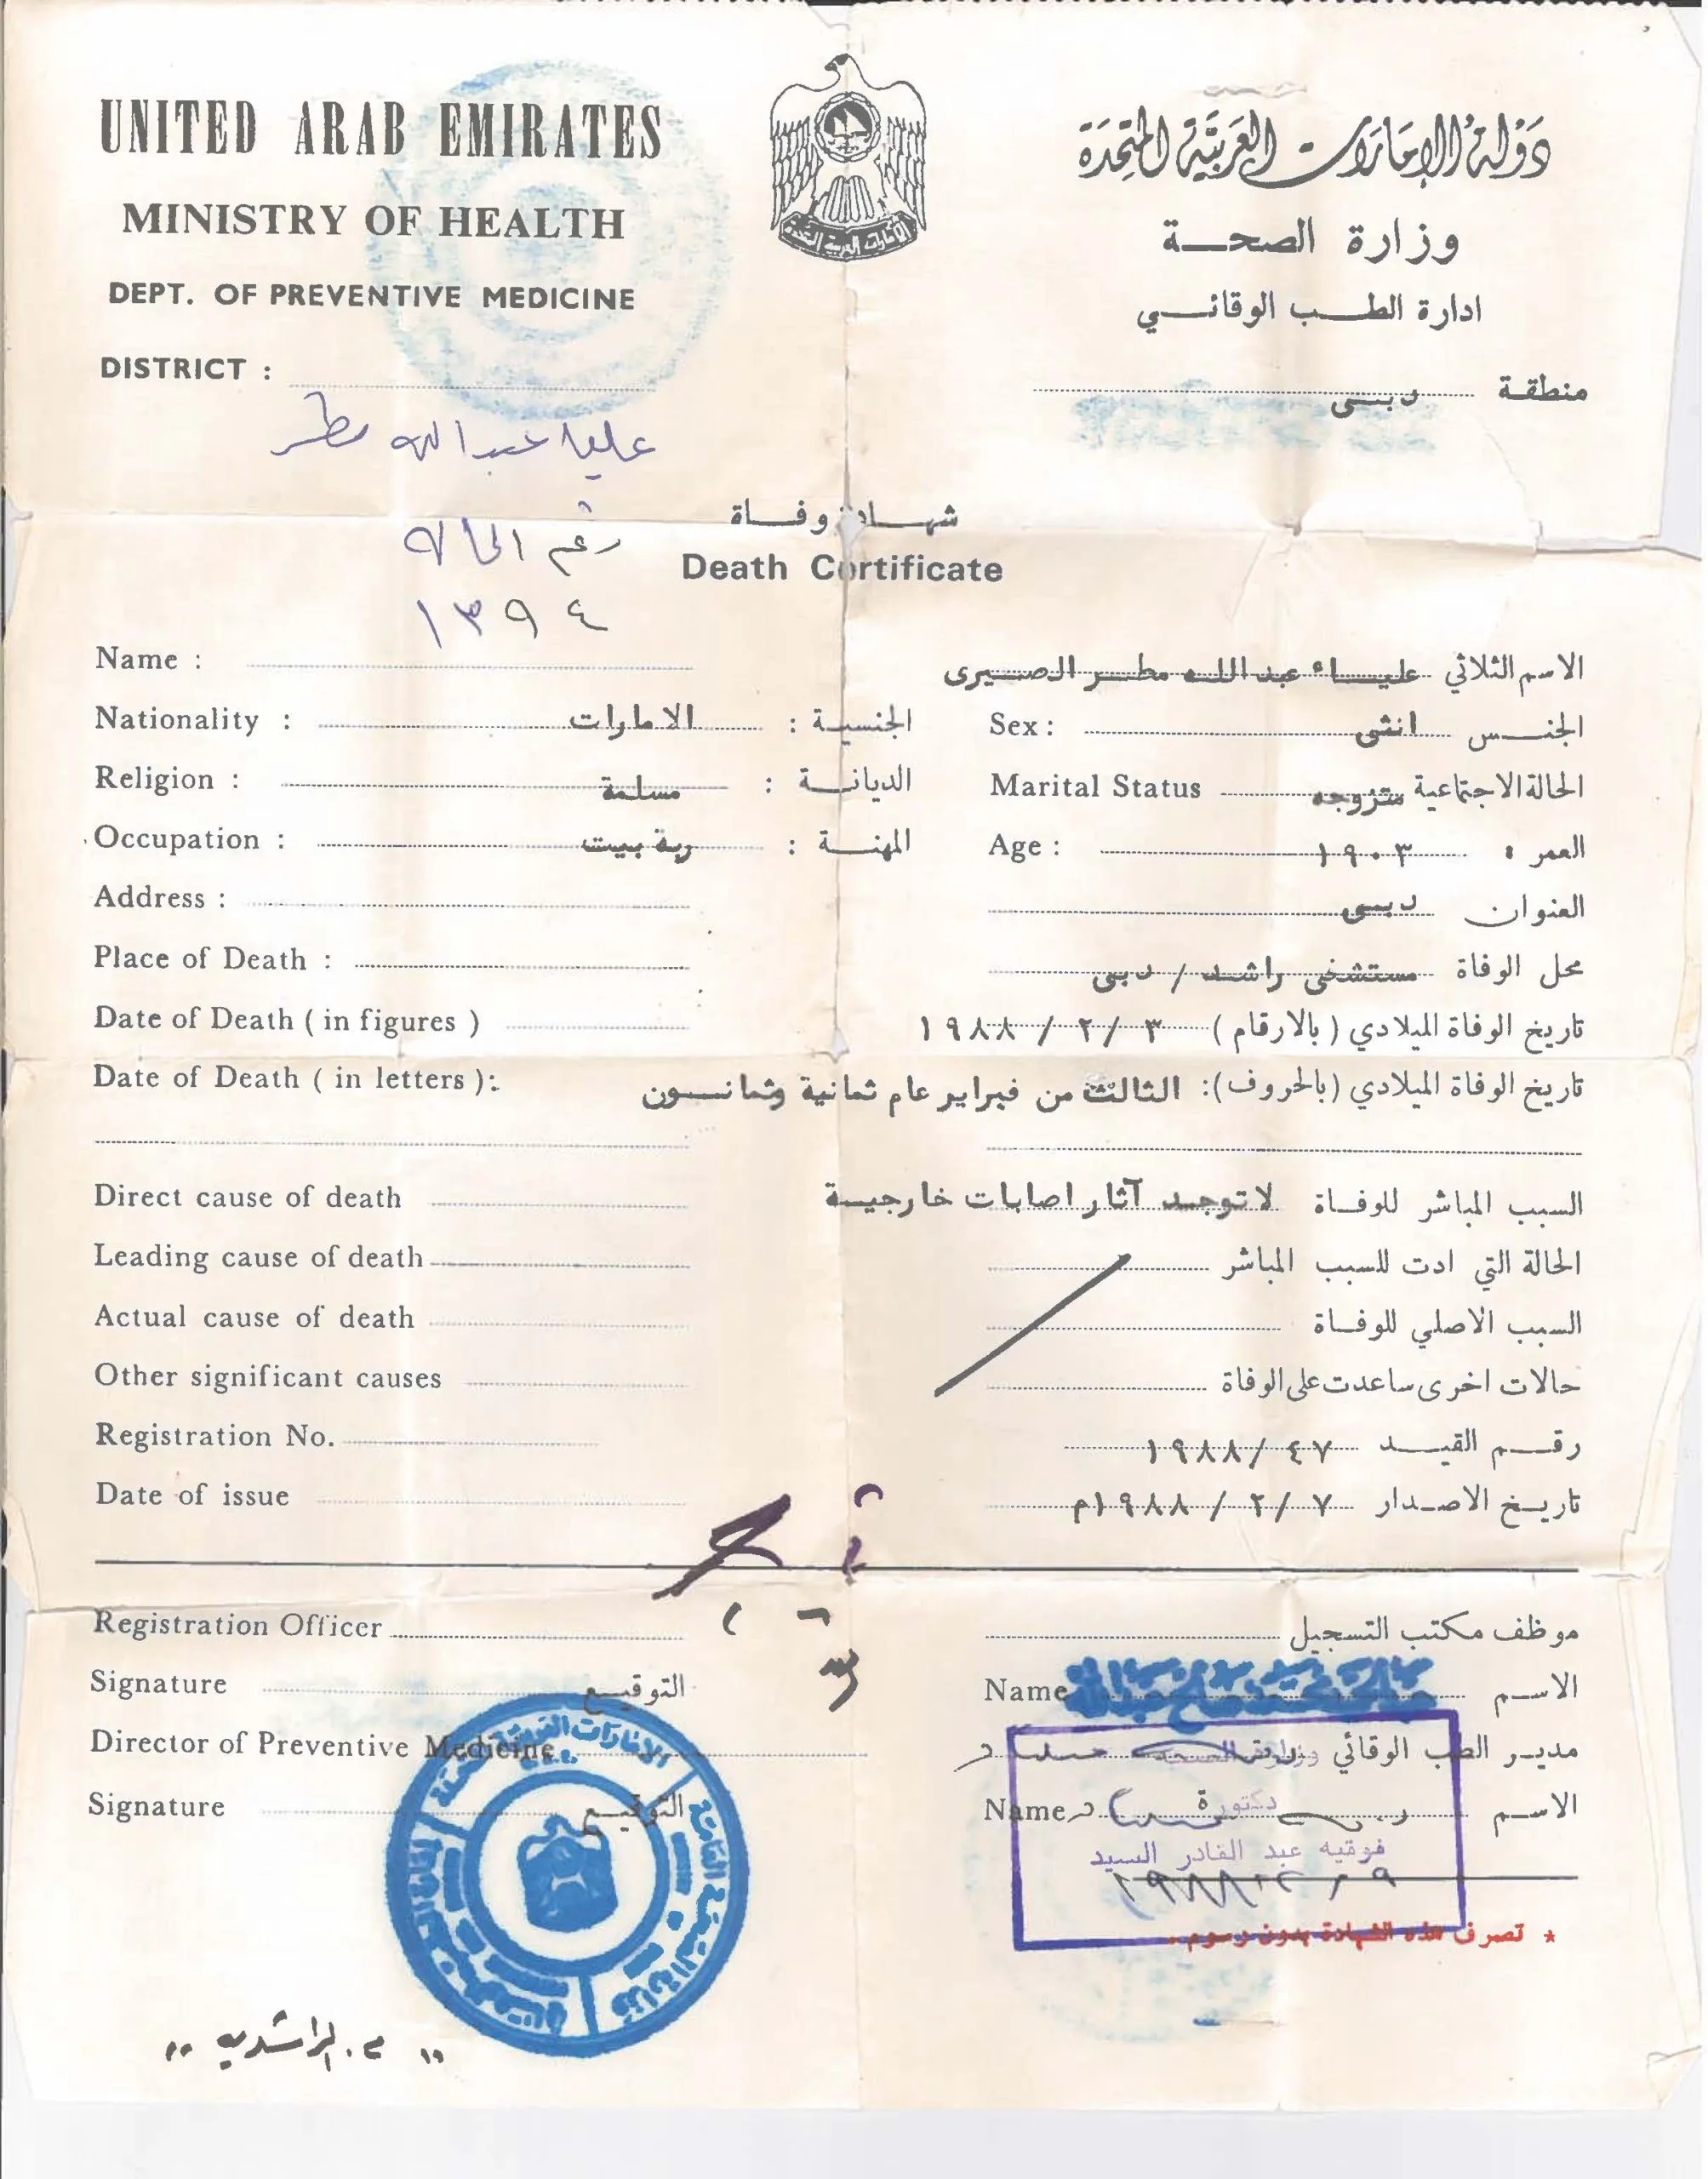 UNITED ARAB EMIRATES
دولة الإمارات العربية المتحدة
MINISTRY OF HEALTH
وزارة الصحة
DEPT. OF PREVENTIVE MEDICINE
ادارة الطب الوقائي
DISTRICT :
منطقة دبى
علياء عبدالله مطر
شهادة وفاة
رقم الحاله
Death Certificate
١٣٩٤
Name : الاسم الثلاثي علياء عبدالله مطر الصيرى
Nationality : الامارات الجنسية : Sex : انثى الجنس
Religion : مسلمة الديانة : Marital Status متزوجه الحالة الاجتماعية
Occupation : ربة بيت المهنة : Age : ١٩٠٣ العمر :
Address : العنوان دبى
Place of Death : محل الوفاة مستشفى راشد / دبى
Date of Death ( in figures ) تاريخ الوفاة الميلادي ( بالارقام ) ٣ / ٢ / ١٩٨٨
Date of Death ( in letters ): تاريخ الوفاة الميلادي (بالحروف): الثالث من فبراير عام ثمانية وثمانون
Direct cause of death السبب المباشر للوفاة لا توجد آثار اصابات خارجية
Leading cause of death الحالة التي ادت للسبب المباشر
Actual cause of death السبب الاصلي للوفاة
Other significant causes حالات اخرى ساعدت على الوفاة
Registration No. رقم القيد ٤٧/١٩٨٨
Date of issue تاريخ الاصدار ٧ / ٢ / ١٩٨٨م
Registration Officer موظف مكتب التسجيل
Signature التوقيع Name الاسم
Director of Preventive Medicine مدير الطب الوقائي
وزارة الصحة
Signature التوقيع Name الاسم
دكتورة
فوقيه عبد القادر السيد
* تصرف هذه الشهادة بدون رسوم .
الامارات العربية المتحدة
م. الراشديه